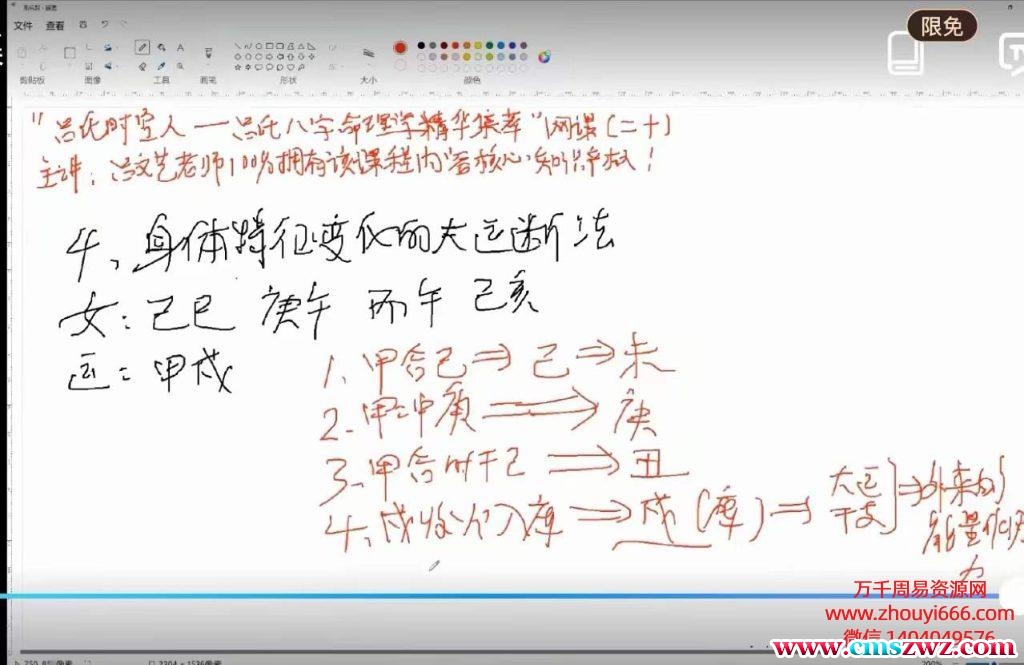 文件 查看
限免
剪贴板 图像 工具 画笔 形状 大小 颜色
"吕氏时空人一吕氏八字命理学精华集萃"网课(二十)
主讲:吕文艺老师100%拥有该课程内容核心知识产权!
4、身体特征变化的大运断法
女:己巳 庚午 丙午 己亥
运:甲戌
1、甲合己⇒己⇒未
2、甲冲庚⇒庚
3、甲合时干己⇒丑
4、戌收火入库⇒戌(库)⇒大运干支⇒外来的能量
万千周易资源网
www.zhouyi666.com
微信 1404049576
www.cmszwz.com